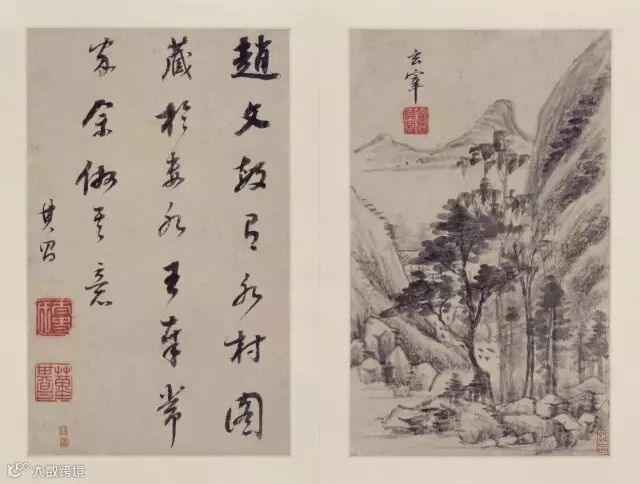 趙文敏有水村圖
藏於婁水王奉常
家余倣其意
其昌
玄宰
大数跨境